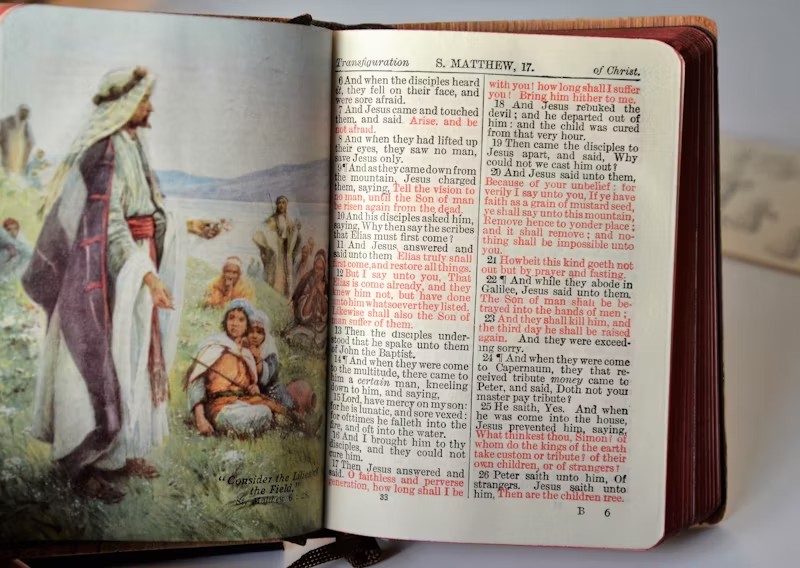 "Consider the Lilies of
the Field."
Transfiguration S. MATTHEW, 17. of Christ.
6 And when the disciples heard
it, they fell on their face, and
were sore afraid.
7 And Jesus came and touched
them, and said, Arise, and be
not afraid.
8 And when they had lifted up
their eyes, they saw no man,
save Jesus only.
9 ¶ And as they came down from
the mountain, Jesus charged
them, saying, Tell the vision to
no man, until the Son of man
be risen again from the dead.
10 And his disciples asked him,
saying, Why then say the scribes
that Elias must first come?
11 And Jesus answered and
said unto them Elias truly shall
first come, and restore all things.
12 But I say unto you, That
Elias is come already, and they
knew him not, but have done
unto him whatsoever they listed.
Likewise shall also the Son of
man suffer of them.
13 Then the disciples under-
stood that he spake unto them
of John the Baptist.
14 ¶ And when they were come
to the multitude, there came to
him a certain man, kneeling
down to him, and saying,
15 Lord, have mercy on my son:
for he is lunatic, and sore vexed:
for ofttimes he falleth into the
fire, and oft into the water.
16 And I brought him to thy
disciples, and they could not
cure him.
17 Then Jesus answered and
said, O faithless and perverse
generation, how long shall I be
33
with you? how long shall I suffer
you? Bring him hither to me.
18 And Jesus rebuked the
devil; and he departed out of
him: and the child was cured
from that very hour.
19 Then came the disciples to
Jesus apart, and said, Why
could not we cast him out?
20 And Jesus said unto them,
Because of your unbelief: for
verily I say unto you, If ye have
faith as a grain of mustard seed,
ye shall say unto this mountain,
Remove hence to yonder place;
and it shall remove; and no-
thing shall be impossible unto
you.
21 Howbeit this kind goeth not
out but by prayer and fasting.
22 ¶ And while they abode in
Galilee, Jesus said unto them,
The Son of man shall be be-
trayed into the hands of men;
23 And they shall kill him, and
the third day he shall be raised
again. And they were exceed-
ing sorry.
24 ¶ And when they were come
to Capernaum, they that re-
ceived tribute money came to
Peter, and said, Doth not your
master pay tribute?
25 He saith, Yes. And when
he was come into the house,
Jesus prevented him, saying,
What thinkest thou, Simon? of
whom do the kings of the earth
take custom or tribute? of their
own children, or of strangers?
26 Peter saith unto him, Of
strangers. Jesus saith unto
him, Then are the children free.
B 6